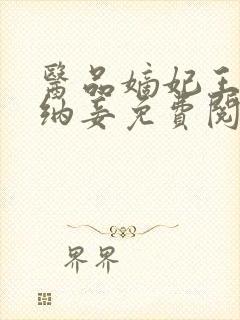 醫品嫡妃王
納妾免費閱
界界